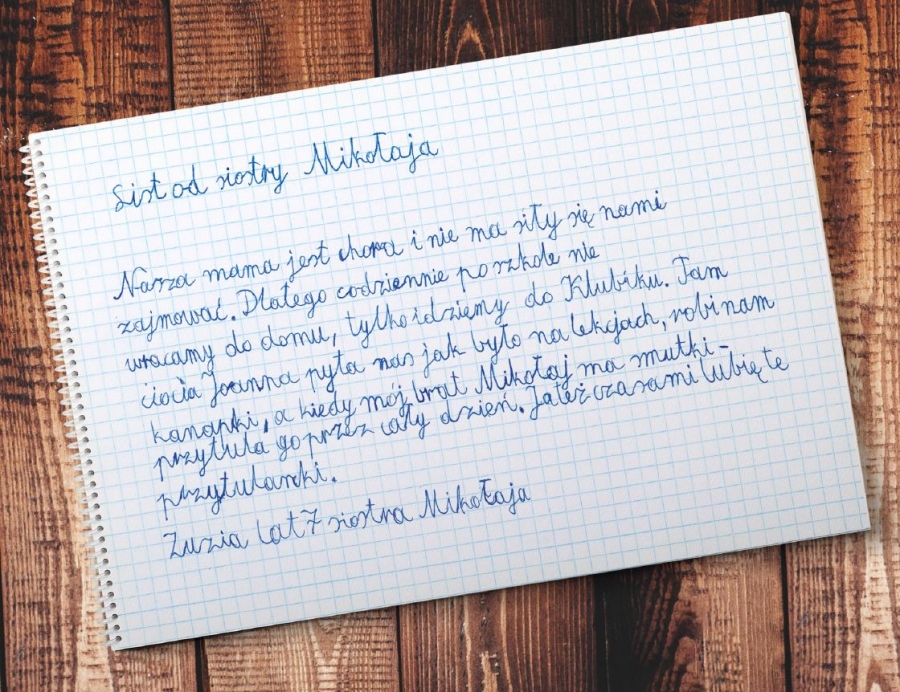 List od siostry Mikołaja
Nasza mama jest chora i nie ma siły się nami
zajmować. Dlatego codziennie po szkole nie
wracamy do domu, tylko idziemy do Klubiku. Tam
ciocia Joanna pyta nas jak było na lekcjach, robi nam
kanapki, a kiedy mój brat Mikołaj ma smutki-
przytula go przez cały dzień. Ja też czasami lubię te
przytulanki.
Zuzia lat 7 siostra Mikołaja